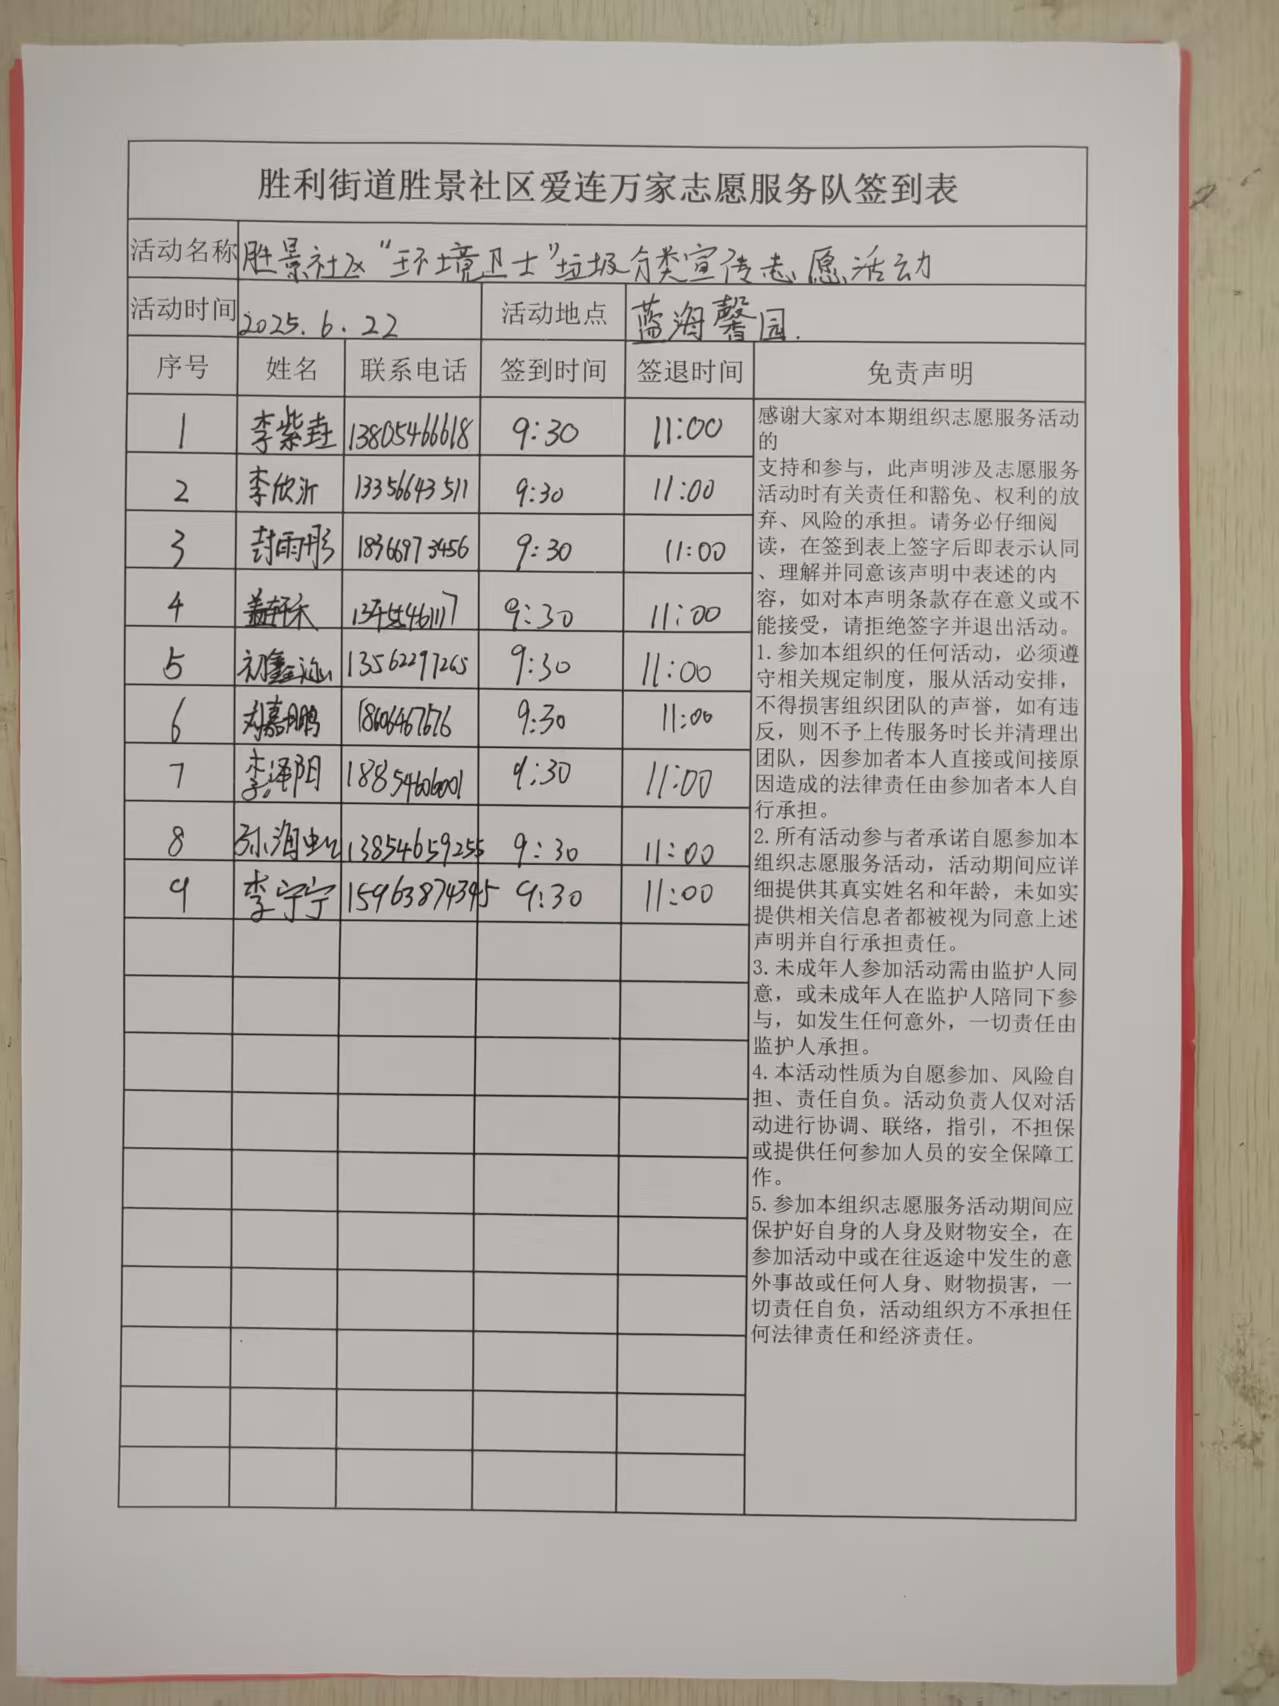 胜利街道胜景社区爱连万家志愿服务队签到表
活动名称 胜景社区“环境卫士”垃圾分类宣传志愿活动
活动时间 2025.6.22 活动地点 蓝海馨园.
序号 姓名 联系电话 签到时间 签退时间 免责声明
1 李紫垚 13805466618 9:30 11:00
2 李欣沂 13356643511 9:30 11:00
3 封雨彤 18366973456 9:30 11:00
4 盖轩禾 9:30 11:00
5 13562297265 9:30 11:00
6 刘嘉鹏 18606467676 9:30 11:00
7 李泽阳 18854606001 9:30 11:00
8 13854659255 9:30 11:00
9 李宁宁 15963874395 9:30 11:00
感谢大家对本期组织志愿服务活动
的
支持和参与，此声明涉及志愿服务
活动时有关责任和豁免、权利的放
弃、风险的承担。请务必仔细阅
读，在签到表上签字后即表示认同
、理解并同意该声明中表述的内
容，如对本声明条款存在意义或不
能接受，请拒绝签字并退出活动。
1.参加本组织的任何活动，必须遵
守相关规定制度，服从活动安排，
不得损害组织团队的声誉，如有违
反，则不予上传服务时长并清理出
团队，因参加者本人直接或间接原
因造成的法律责任由参加者本人自
行承担。
2.所有活动参与者承诺自愿参加本
组织志愿服务活动，活动期间应详
细提供其真实姓名和年龄，未如实
提供相关信息者都被视为同意上述
声明并自行承担责任。
3.未成年人参加活动需由监护人同
意，或未成年人在监护人陪同下参
与，如发生任何意外，一切责任由
监护人承担。
4.本活动性质为自愿参加、风险自
担、责任自负。活动负责人仅对活
动进行协调、联络，指引，不担保
或提供任何参加人员的安全保障工
作。
5.参加本组织志愿服务活动期间应
保护好自身的人身及财物安全，在
参加活动中或在往返途中发生的意
外事故或任何人身、财物损害，一
切责任自负，活动组织方不承担任
何法律责任和经济责任。